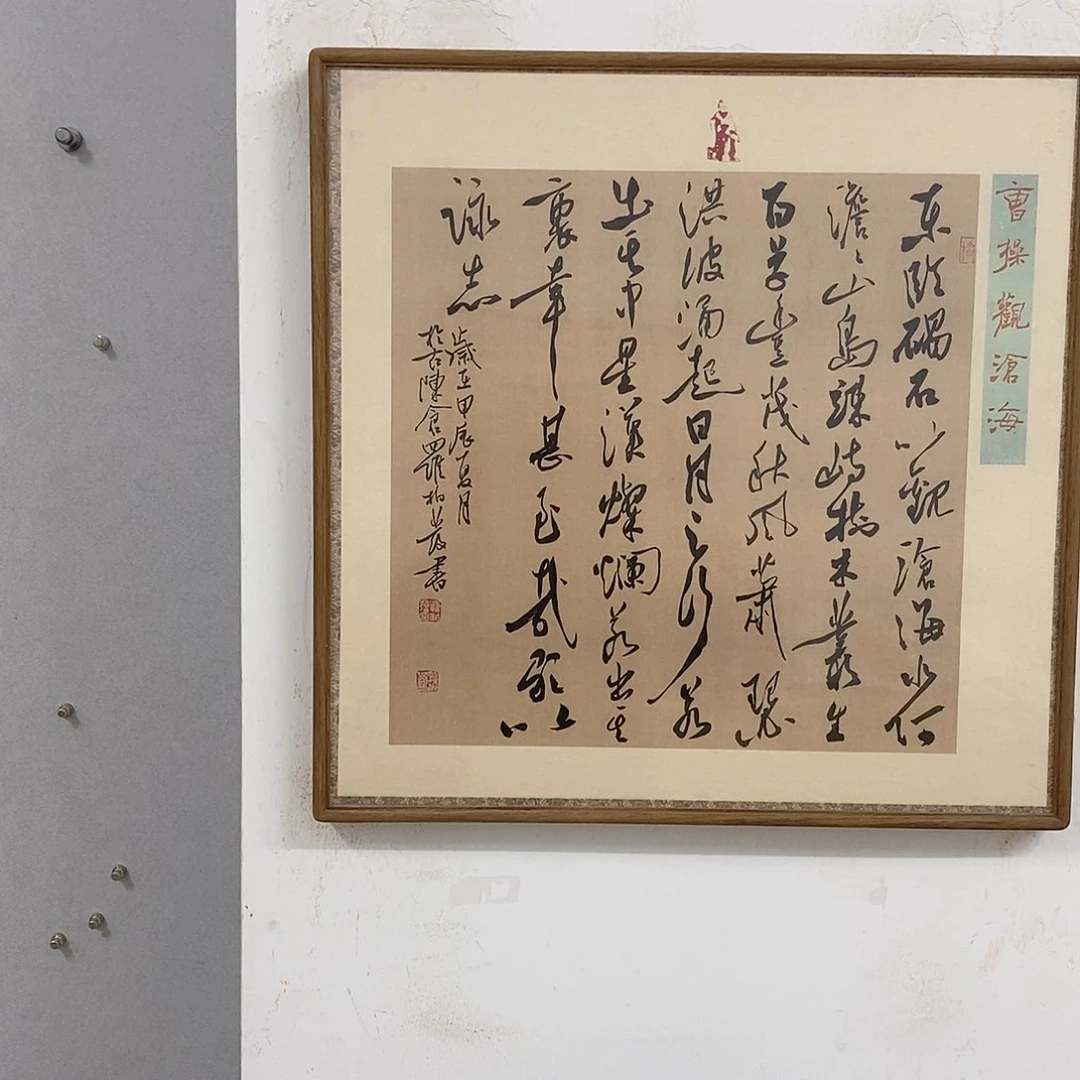 曹操觀滄海
东臨碣石以觀滄海水何
澹澹山島竦峙樹木叢生
百草豐茂秋風蕭瑟
洪波涌起日月之行若
出其中星漢燦爛若出其
裏幸甚至哉歌以
詠志
歲在甲辰夏月
於古陳倉羅柏書